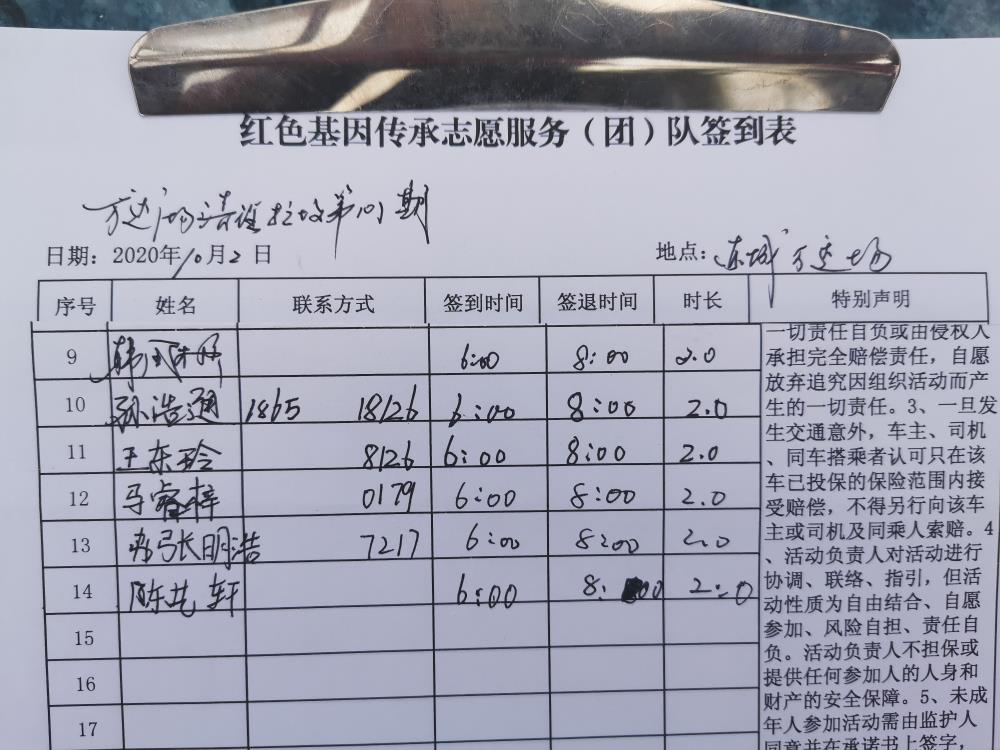 红色基因传承志愿服务（团）队签到表
万达广场清理垃圾第101期
日期：2020年10月2日 地点：东城万达广场
序号 姓名 联系方式 签到时间 签退时间 时长 特别声明
9 韩 6:00 8:00 2.0
10 孙浩通 1865 18126 6:00 8:00 2.0
11 王东玲 8126 6:00 8:00 2.0
12 马睿梓 0179 6:00 8:00 2.0
13 张明浩 7217 6:00 8:00 2.0
14 陈艺轩 6:00 8:00 2:0
15
16
17
一切责任自负或由侵权人
承担完全赔偿责任，自愿
放弃追究因组织活动而产
生的一切责任。3、一旦发
生交通意外，车主、司机
、同车搭乘者认可只在该
车已投保的保险范围内接
受赔偿，不得另行向该车
主或司机及同乘人索赔。4
、活动负责人对活动进行
协调、联络、指引，但活
动性质为自由结合、自愿
参加、风险自担、责任自
负。活动负责人不担保或
提供任何参加人的人身和
财产的安全保障。5、未成
年人参加活动需由监护人
同意并在承诺书上签字，